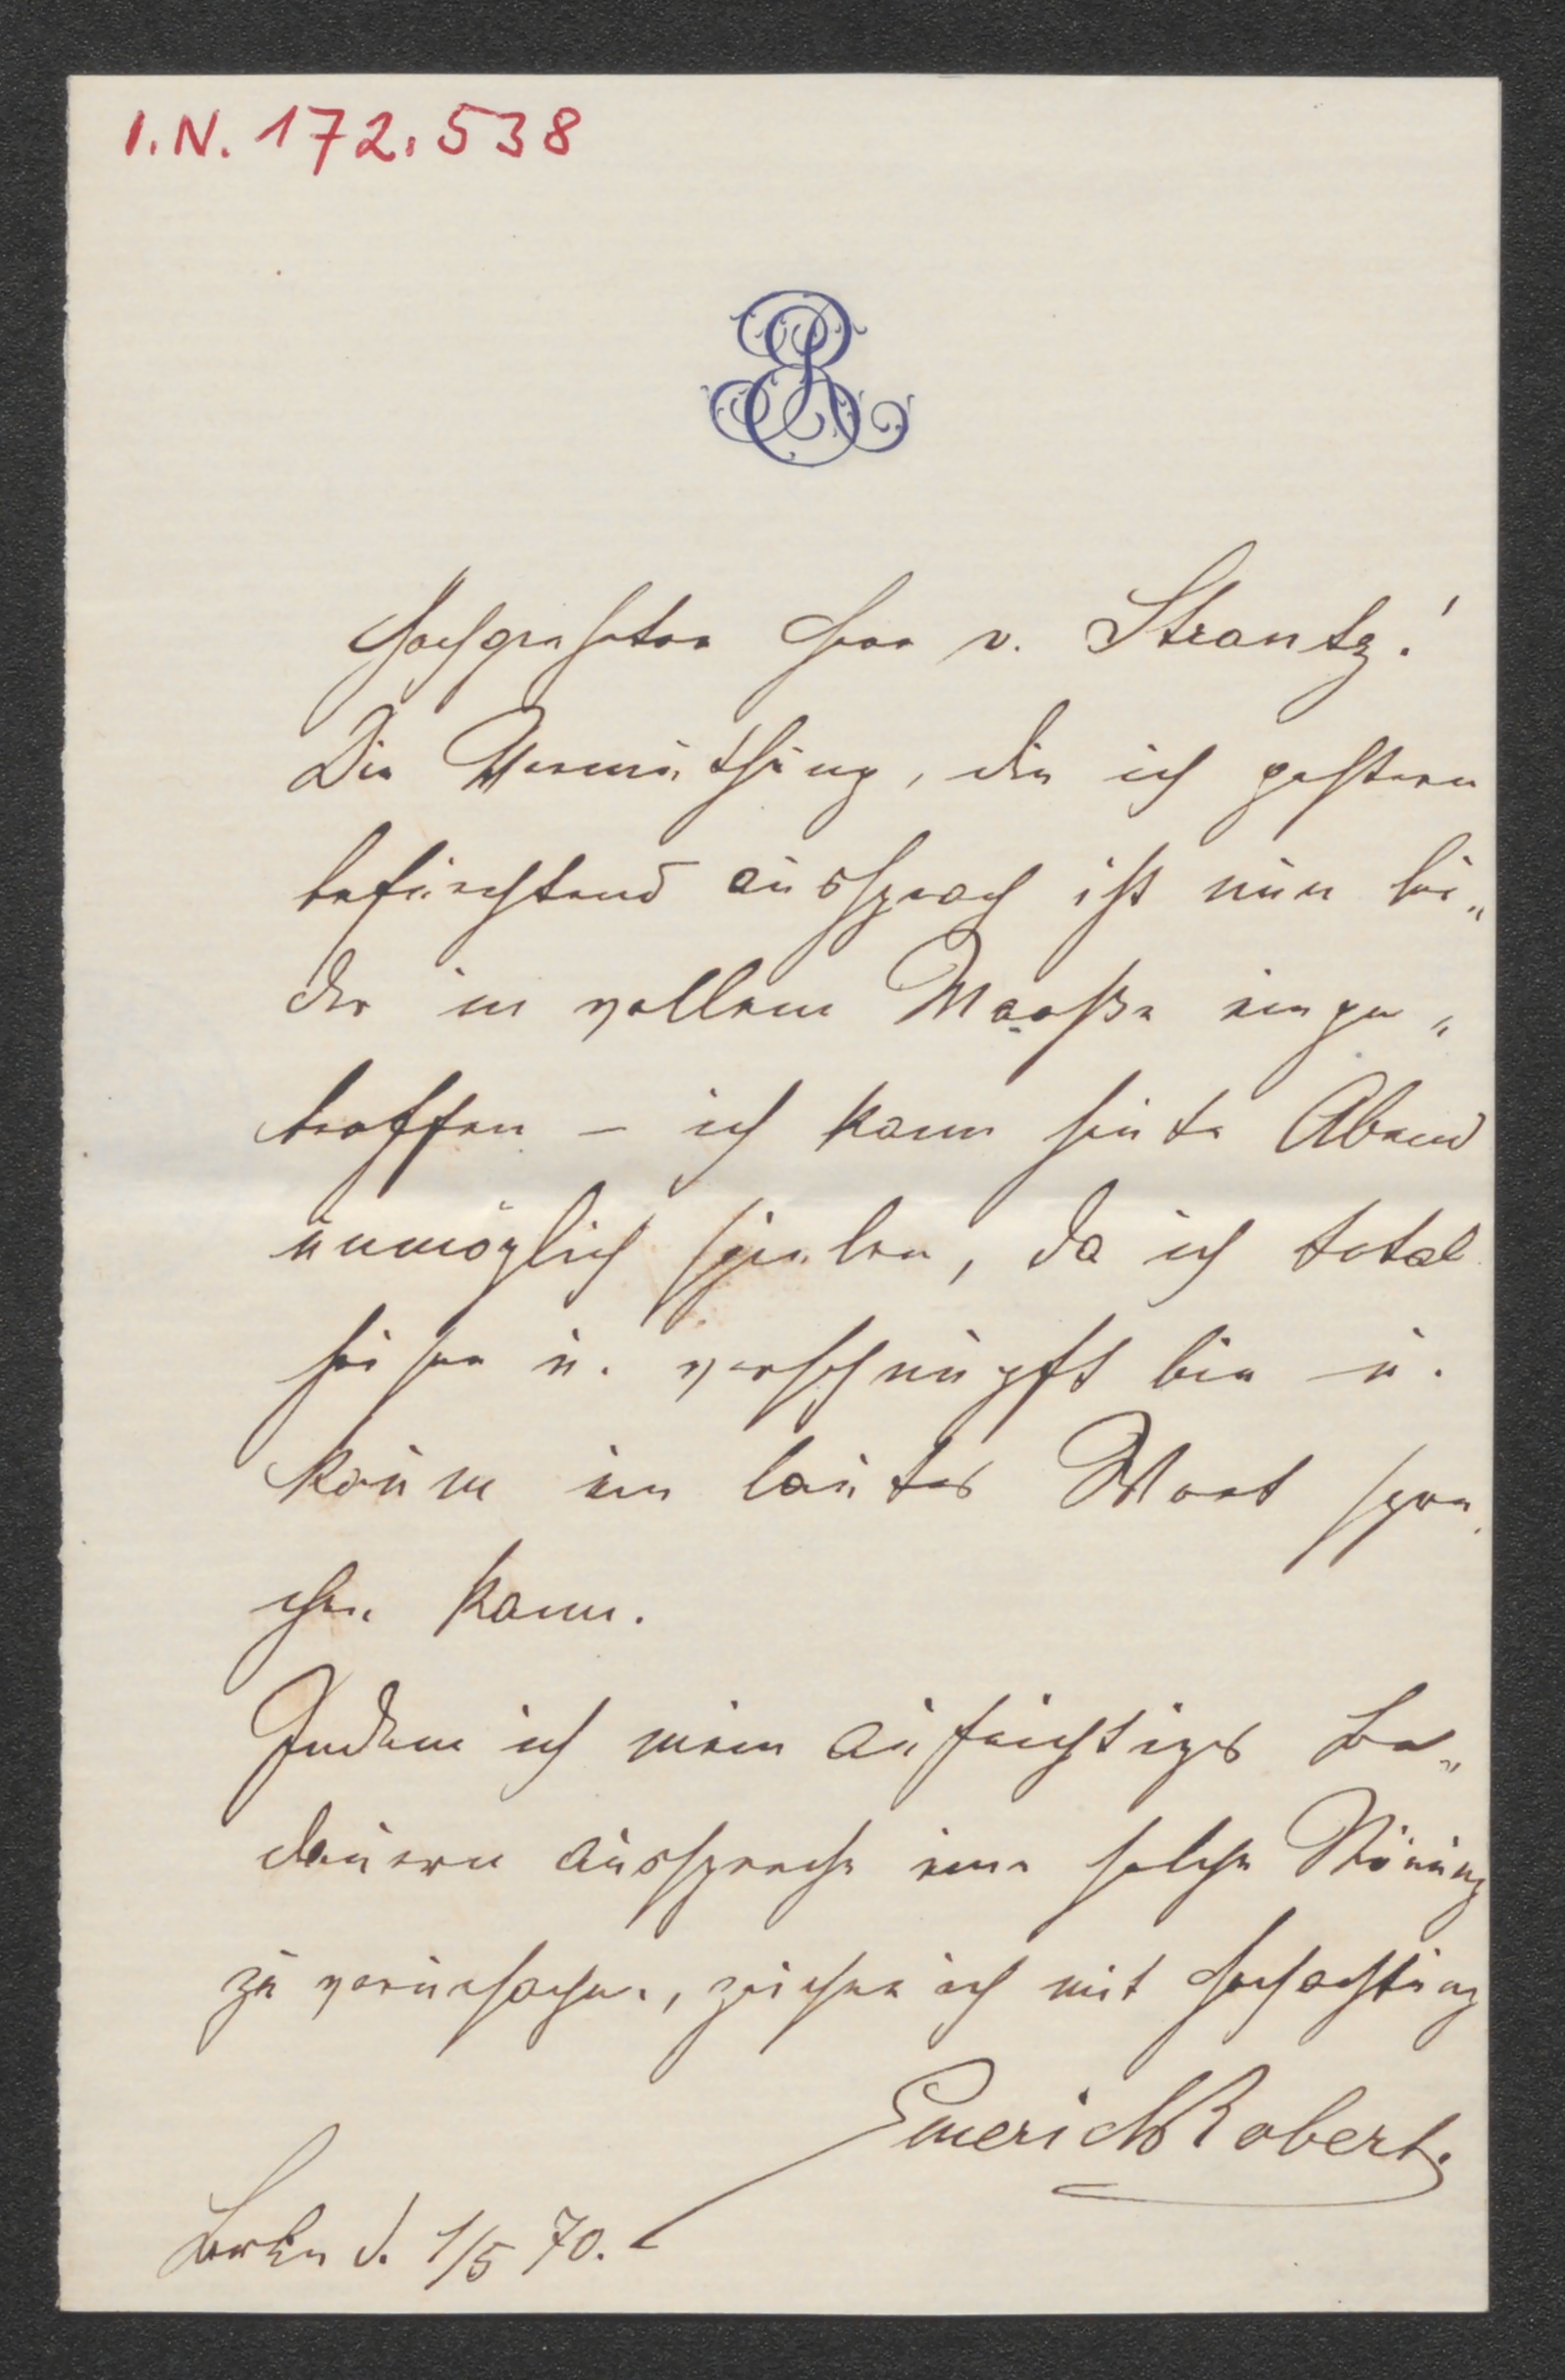 I.N. 172.538
ER
Hochgeehrter Herr v. Strantz!
Die Vermuthung, die ich gestern
befürchtend aussprach ist nun lei„
der in vollem Maaße einge„
troffen – ich kann heute Abend
unmöglich spielen, da ich total
heiser u. verschnupft bin u.
kaum ein lautes Wort spre„
chen kann.
Indem ich mein aufrichtiges Be„
dauern ausspreche eine solche Störung
zu verursachen, zeichne ich mit Hochachtung
Emerich Robert.
Berlin d. 1/5 70.